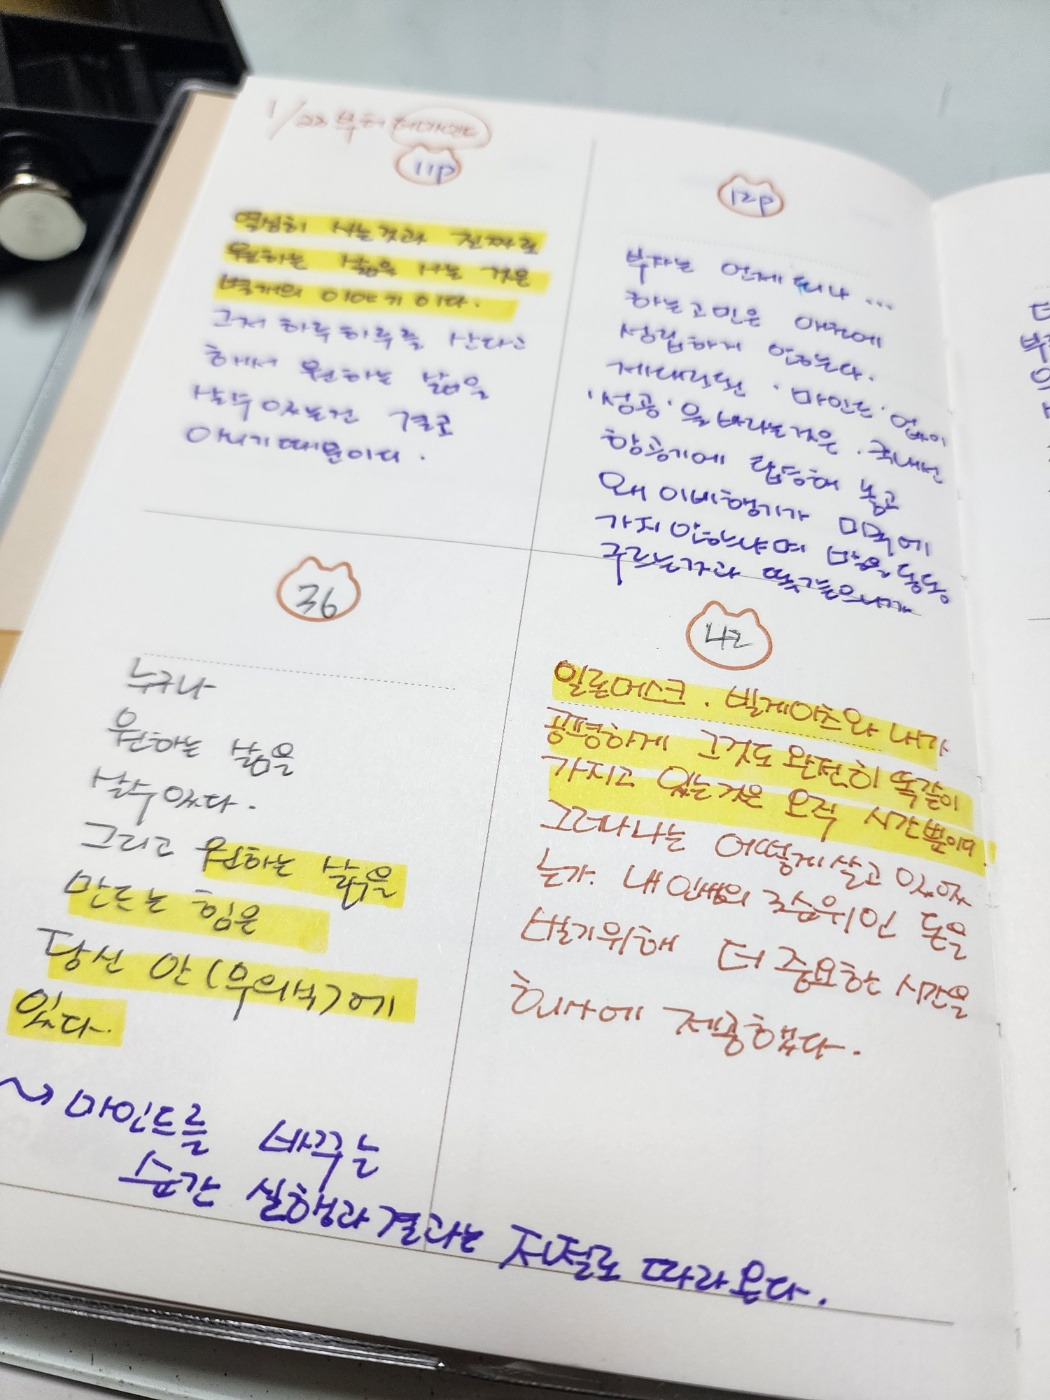 1/22 부터
11p
열심히 사는것과 진짜로
원하는 삶을 사는 것은
별개의 이야기이다.
그저 하루하루를 산다고
해서 원하는 삶을
살수 있는건 결코
아니기 때문이다.
12p
부자는 언제 되나 ...
하는 고민은 애초에
성립하지 않는다.
제대로된 '마인드' 없이
'성공'을 바라는것은. 국내선
항공기에 탑승해 놓고
왜 이비행기가 미국에
가지 안하냐며 발을 동동
구르는거과 똑같으니까
36
누구나
원하는 삶을
살수있다.
그리고 원하는 삶을
만드는 힘은
당신 안(무의식)에
있다.
42
일론머스크. 빌게이츠와 내가
공평하게 그것도 완전히 똑같이
가지고 있는것은 오직 시간뿐이다.
그러나 나는 어떻게 살고 있었
는가. 내 인생의 3순위인 돈을
벌기위해 더 중요한 시간을
회사에 제공했다.
~> 마인드를 바꾸는
순간 실행과 결과는 저절로 따라온다.